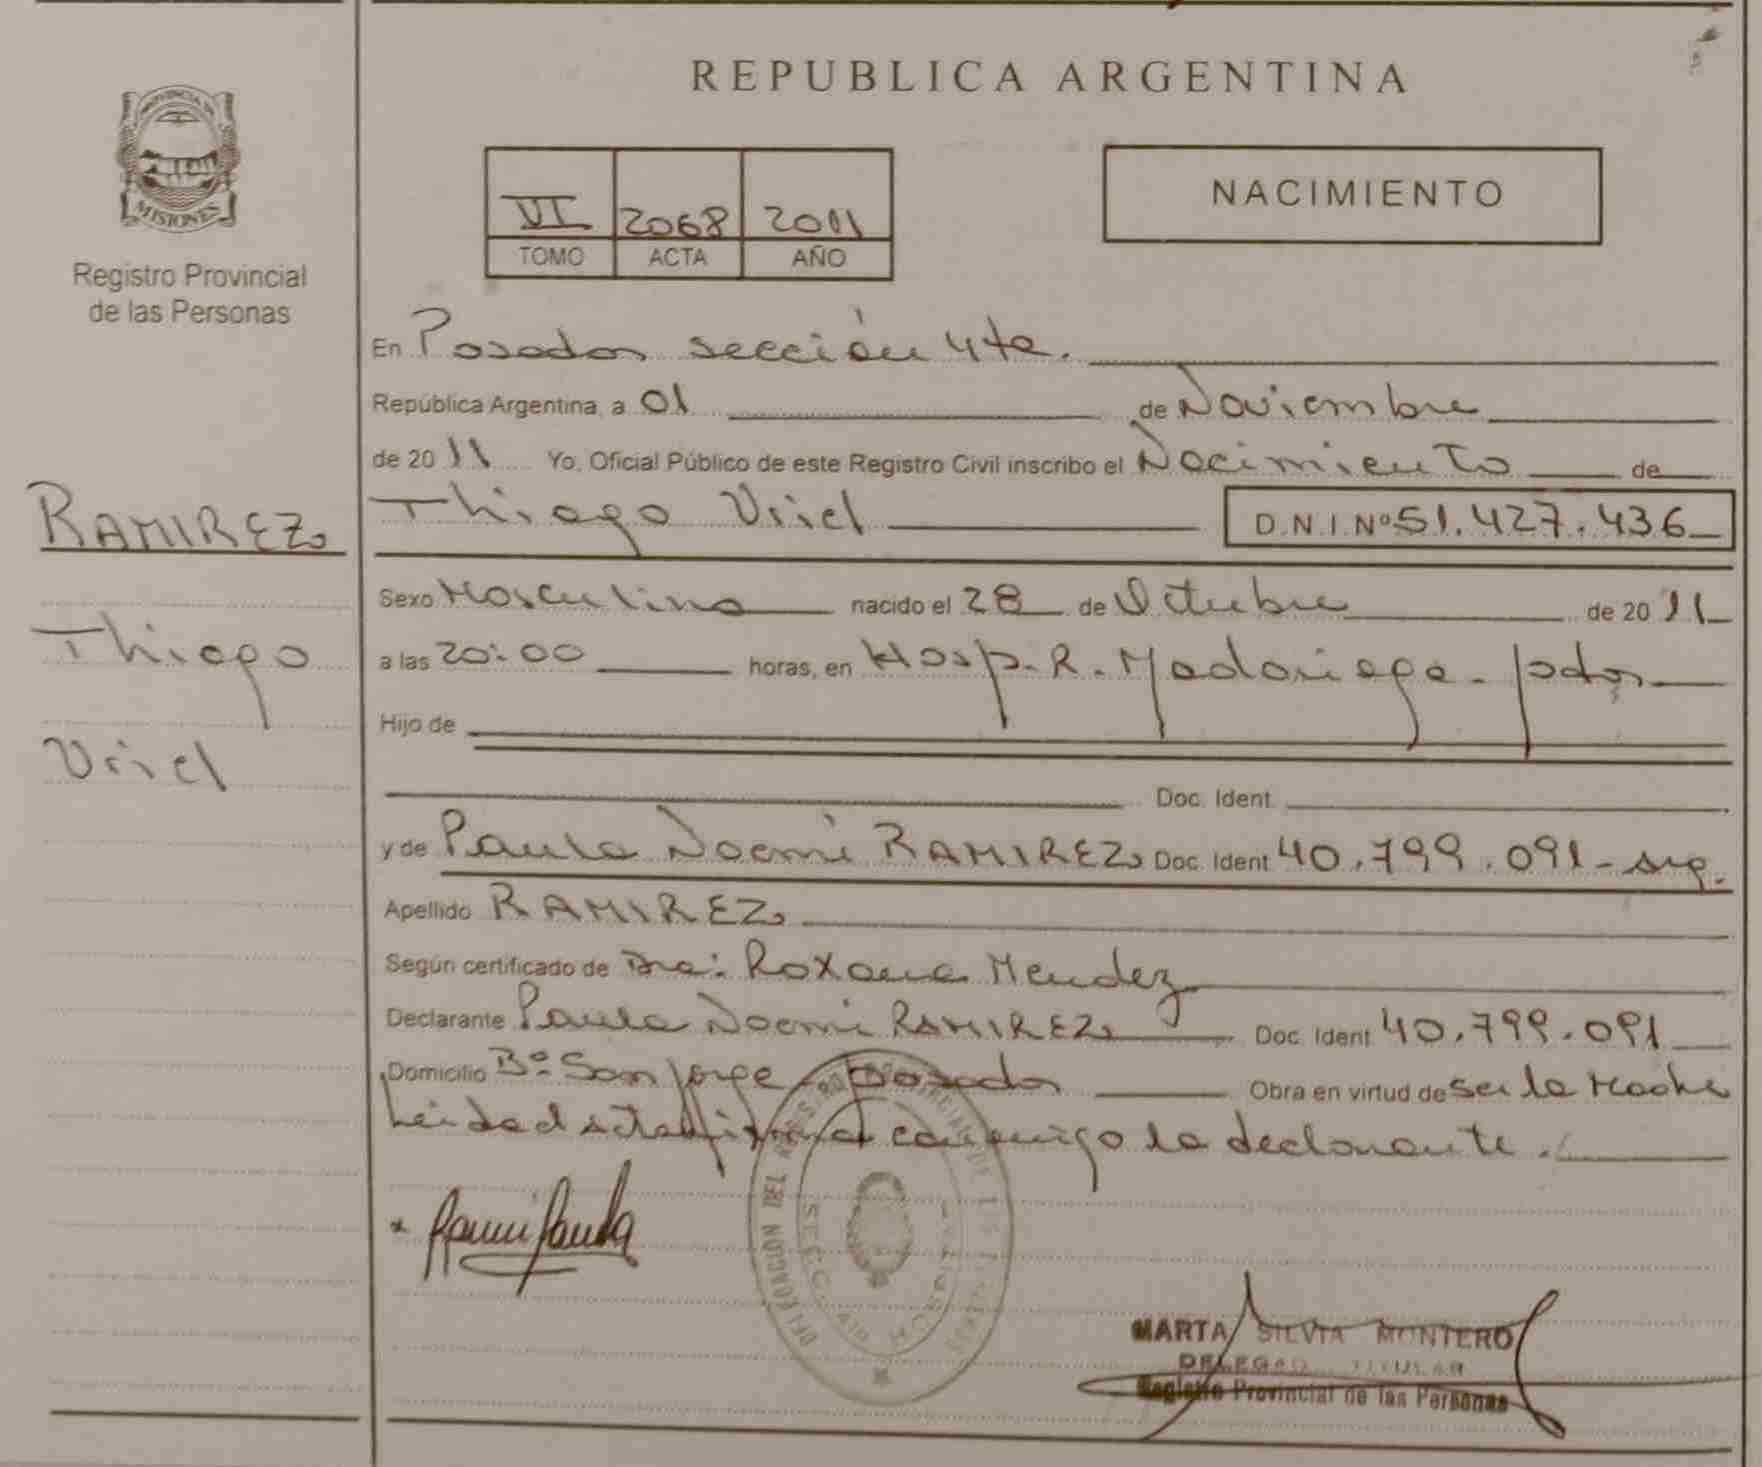 PROVINCIA DE
MISIONES
Registro Provincial
de las Personas
RAMIREZ
Thiago
Uriel
REPUBLICA ARGENTINA
VI 2068 2011
TOMO ACTA AÑO
NACIMIENTO
En Posadas sección 4ta.
República Argentina, a 01 de Noviembre
de 2011 Yo, Oficial Público de este Registro Civil inscribo el Nacimiento de
Thiago Uriel D.N.I. Nº 51.427.436
Sexo Masculino nacido el 28 de Octubre de 2011
a las 20:00 horas, en Hosp. R. Madariaga - pdas
Hijo de
Doc. Ident.
y de Paula Noemi RAMIREZ Doc. Ident 40.799.091 - arg.
Apellido RAMIREZ
Según certificado de Dra: Roxana Mendez
Declarante Paula Noemi RAMIREZ Doc. Ident 40.799.091
Domicilio Bº San Jorge - posadas Obra en virtud de ser la Madre
Leida el Acta firma conmigo la declarante.
DELEGACION DEL REGISTRO PROVINCIAL DE LAS PERSONAS
MARTA SILVIA MONTERO
DELEGADO TITULAR
Registro Provincial de las Personas